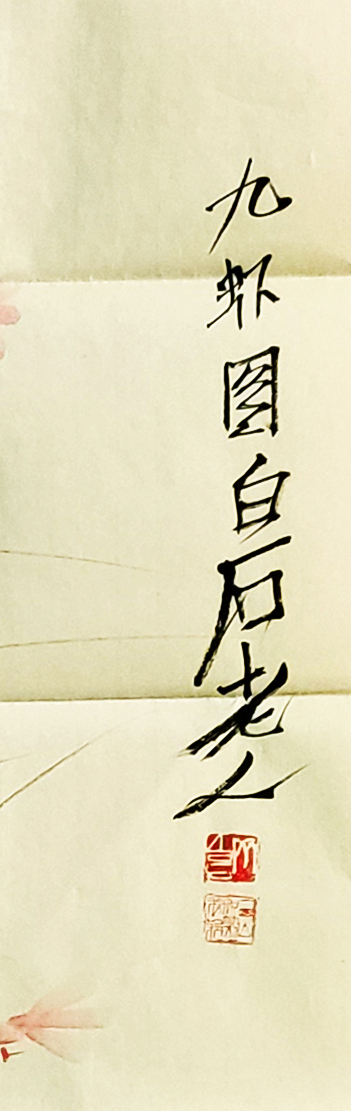 九虾图白石老人